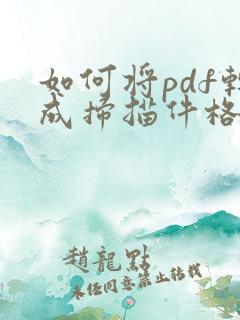 如何将pdf転
成扫描件格
趙龍點
未经同意禁止转载